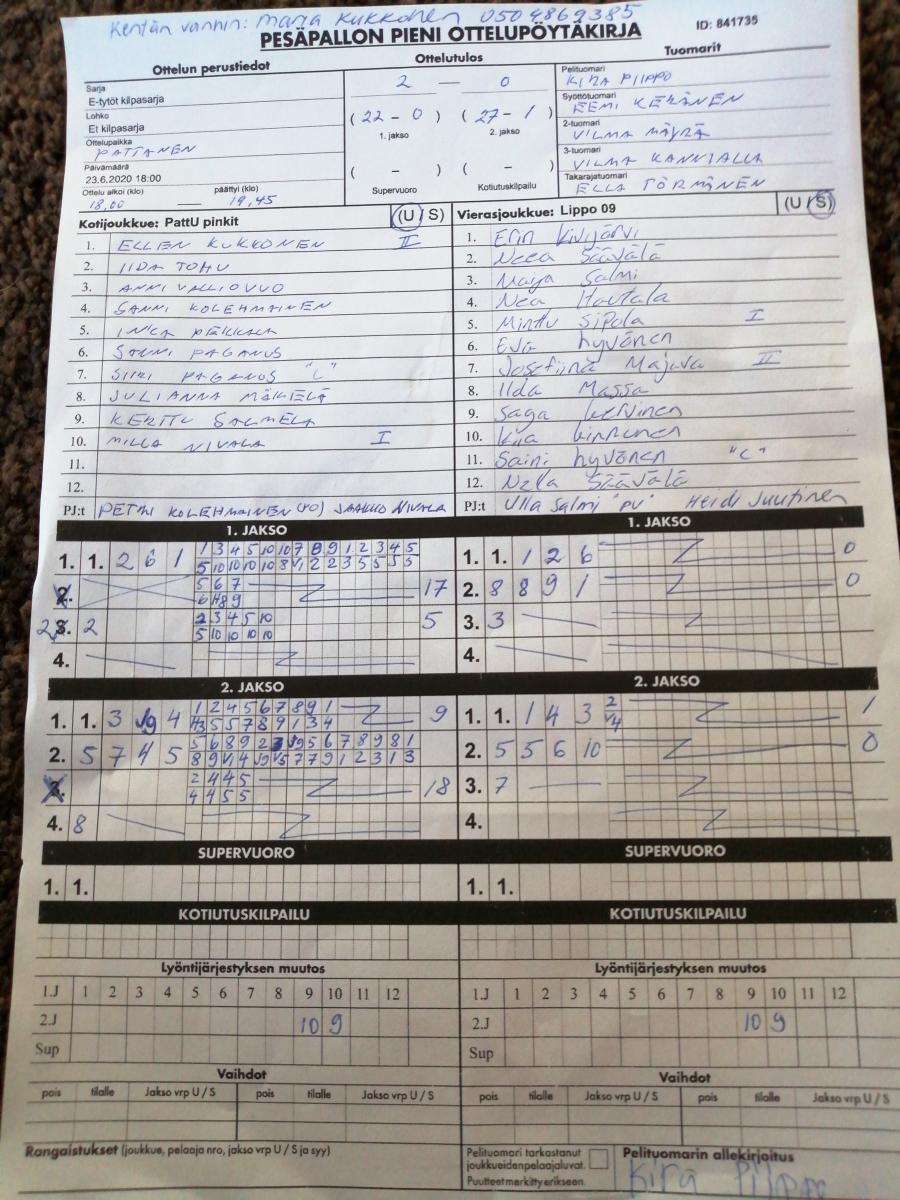 Kentän vanhin: Marja Kukkonen 0504869385
PESÄPALLON PIENI OTTELUPÖYTÄKIRJA
ID: 841735
Ottelun perustiedot
Ottelutulos
Tuomarit
Sarja
E-tytöt kilpasarja
Lohko
Et kilpasarja
Ottelupaikka
PATTANEN
Päivämäärä
23.6.2020 18:00
Ottelu alkoi (klo) päättyi (klo)
18.00 — 19.45
2 — 0
(22 - 0) (27 - 1)
1. jakso 2. jakso
( - ) ( - )
Supervuoro Kotiutuskilpailu
Pelituomari
KIRA PIIPPO
Syöttötuomari
EEMI KERÄNEN
2-tuomari
VILMA MÄYRÄ
3-tuomari
VILMA KANNIALLA
Takarajatuomari
ELLA TÖRMÄNEN
Kotijoukkue: PattU pinkit (U / S)
1. ELLEN KUKKONEN II
2. IIDA TOHU
3. ANNI VALLIOVUO
4. SANNI KOLEHMAINEN
5. INKA PEKKALA
6. SONNI PAGANUS
7. SIIRI PAGANUS "C"
8. JULIANNA MÄKELÄ
9. KERTTU SALMELA
10. MILLA NIVALA I
11.
12.
PJ:t PETRI KOLEHMAINEN (PJ) JAAKKO NIVALA
Vierasjoukkue: Lippo 09 (U / S)
1. Erin Kivijärvi
2. Neea Säävälä
3. Maija Salmi
4. Nea Hautala
5. Minttu Sipola I
6. Eva hyvönen
7. Josefiina Majava II
8. Iida Massa
9. Saga
10. Kiia kinnunen
11. Saini hyvönen "C"
12. Nella Säävälä
PJ:t Ulla Salmi "PV" Heidi Juutinen
1. JAKSO
1. 1. 2 6 1 1 3 4 5 10 10 7 8 9 1 2 3 4 5
5 10 10 10 10 8 V1 2 2 3 5 5 5 5
2. 5 6 7 17
6 H8 9
3. 2 2 3 4 5 10 5
5 10 10 10 10
4.
1. JAKSO
1. 1. 1 2 6 0
2. 8 8 9 1 0
3. 3
4.
2. JAKSO
1. 1. 3 V9 4 1 2 4 5 6 7 8 9 1 9
H3 5 5 7 8 9 1 3 4
2. 5 7 4 5 5 6 8 9 2 3 V9 5 6 7 8 9 8 1
8 9 V1 4 V9 V5 7 7 9 1 2 3 1 3
3. 2 4 4 5 18
4 4 5 5
4. 8
2. JAKSO
1. 1. 1 4 3 2 1
V4
2. 5 5 6 10 0
3. 7
4.
SUPERVUORO
1. 1.
SUPERVUORO
1. 1.
KOTIUTUSKILPAILU
KOTIUTUSKILPAILU
Lyöntijärjestyksen muutos
1.J 1 2 3 4 5 6 7 8 9 10 11 12
2.J 10 9
Sup
Lyöntijärjestyksen muutos
1.J 1 2 3 4 5 6 7 8 9 10 11 12
2.J 10 9
Sup
Vaihdot
pois tilalle Jakso vrp U / S pois tilalle Jakso vrp U / S
Vaihdot
pois tilalle Jakso vrp U / S pois tilalle Jakso vrp U / S
Rangaistukset (joukkue, pelaaja nro, jakso vrp U / S ja syy)
Pelituomari tarkastanut
joukkueidenpelaajaluvat.
Puutteet merkitty erikseen.
Pelituomarin allekirjoitus
Kira Piippo